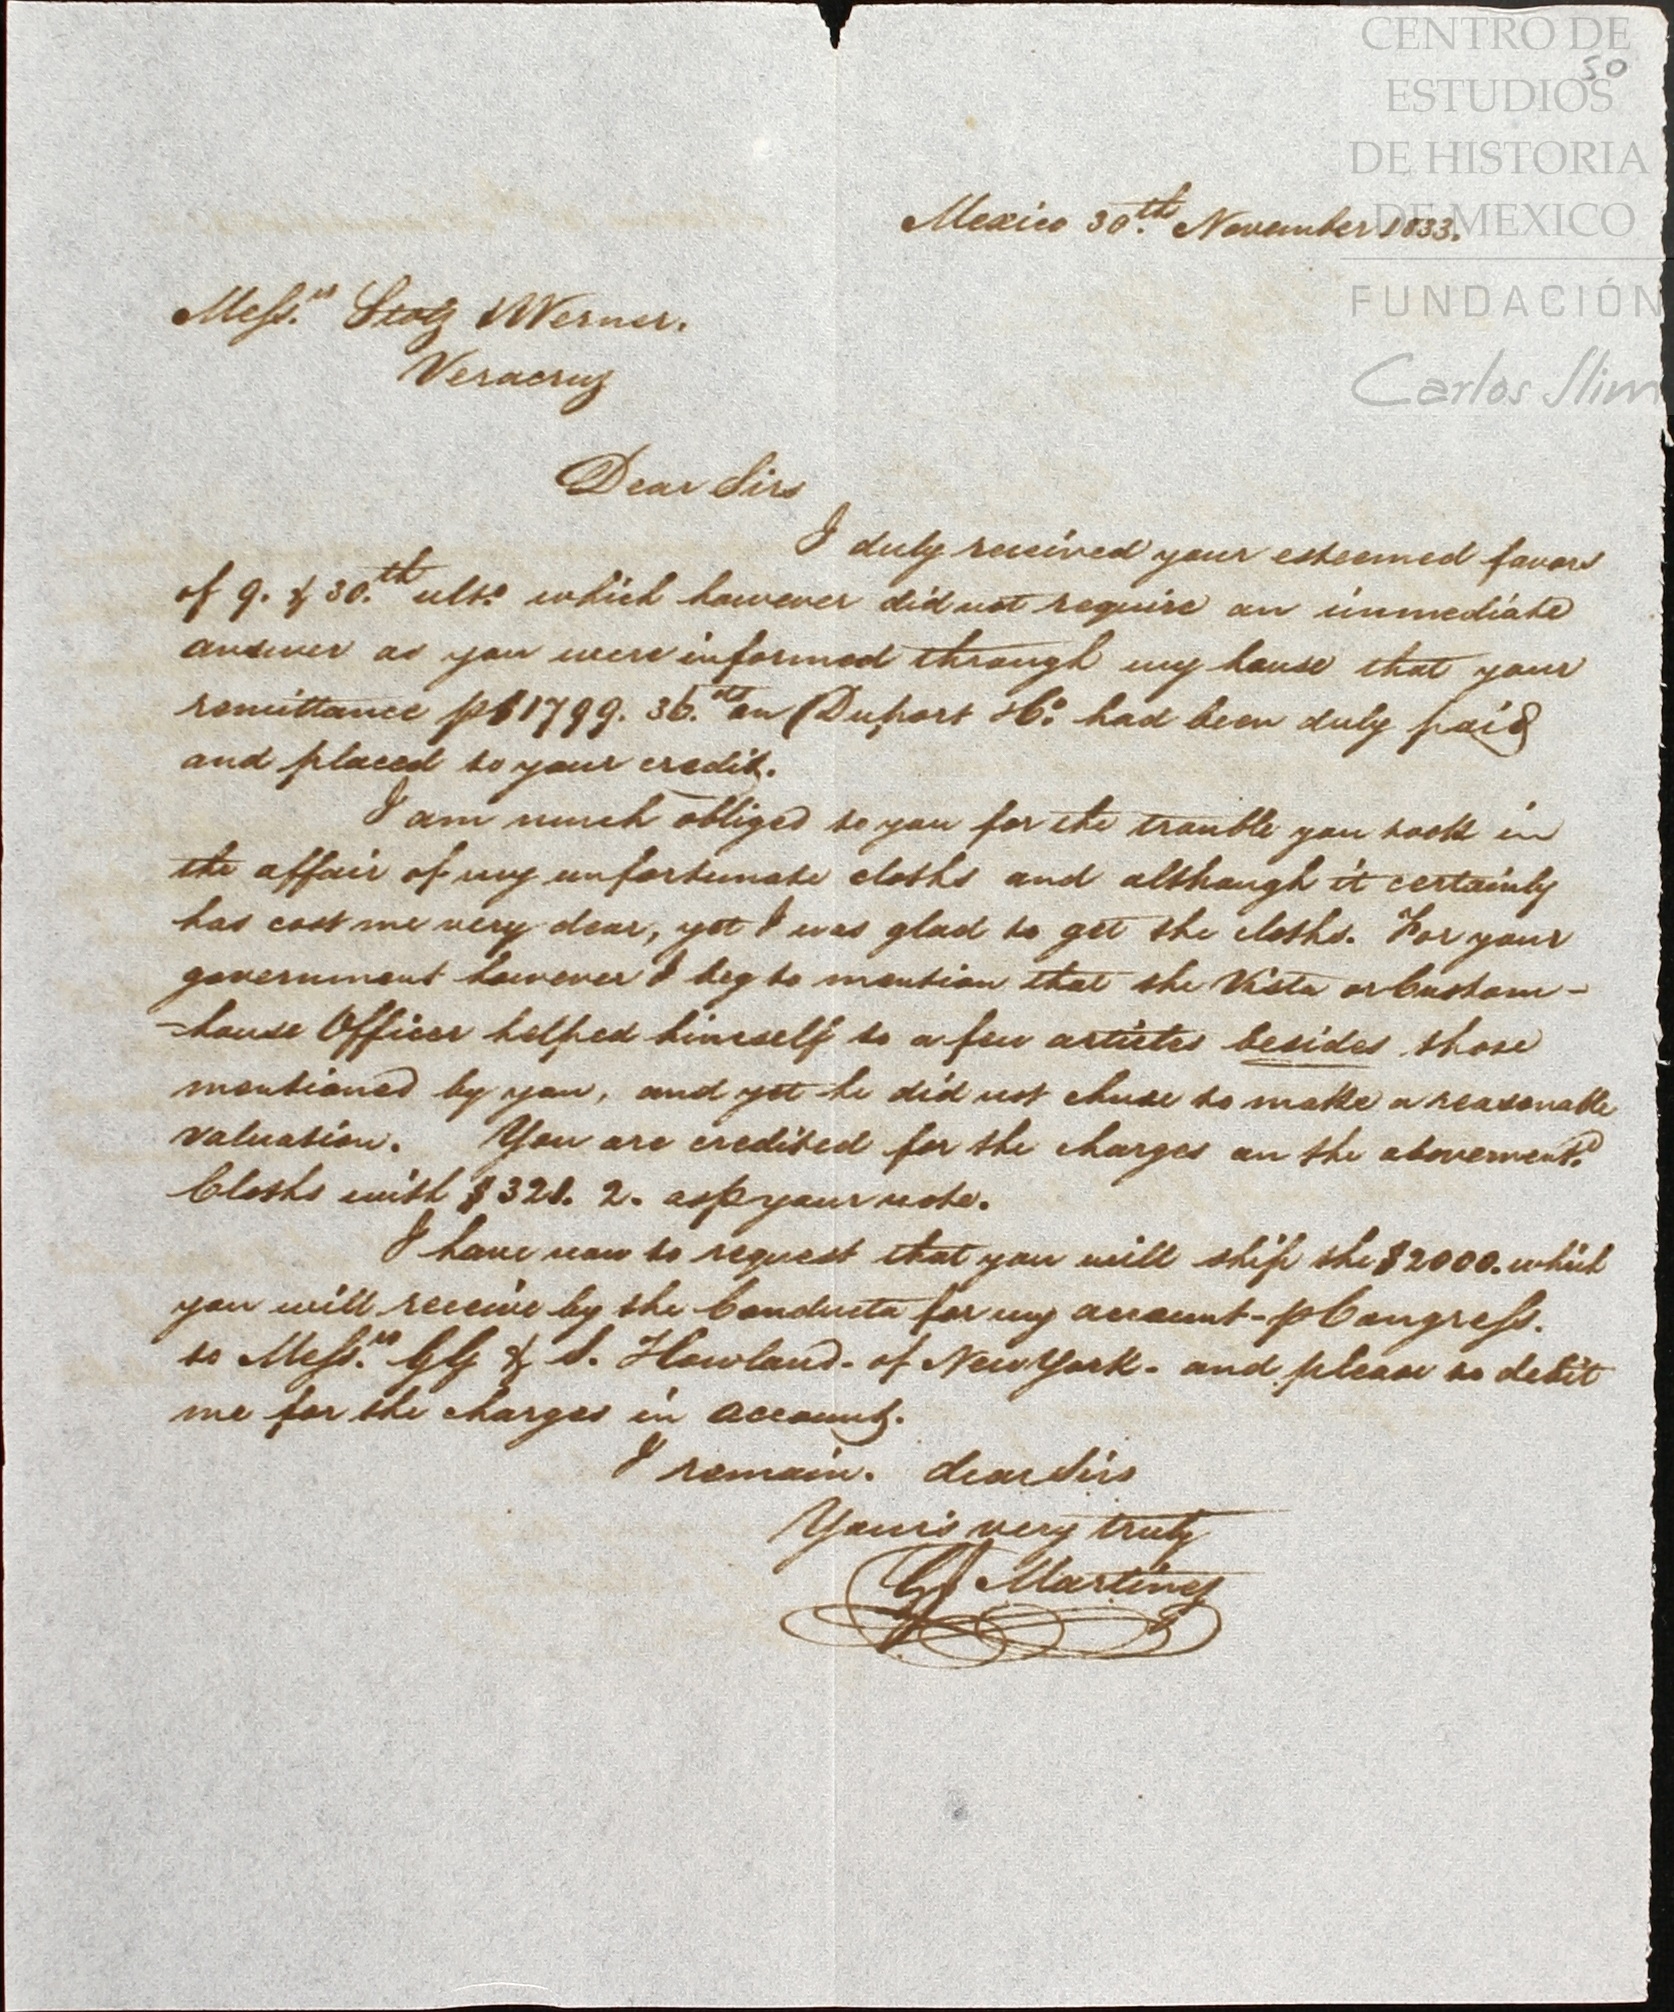 CENTRO DE
50
ESTUDIOS
DE HISTORIA
DE MEXICO
FUNDACIÓN
Carlos Slim
Mexico 30.th November 1833.
Mess.rs Stolz Werner.
Veracruz
Dear Sirs
I duly received your esteemed favors
of 9. & 30.th ult.o which however did not require an immediate
answer as you were informed through my house that your
remittance p $1799. 36.cts on Duport &Co. had been duly paid
and placed to your credit.
I am much obliged to you for the trouble you took in
the affair of my unfortunate cloths and although it certainly
has cost me very dear, yet I was glad to get the cloths. For your
government however I beg to mention that the Vista or Custom-
-house Officer helped himself to a few articles besides those
mentioned by you, and yet he did not chuse to make a reasonable
valuation. You are credited for the charges on the abovement.d
Cloths with $321. 2. as p your note.
I have now to request that you will ship the $2000. which
you will receive by the Conducta for my account - p Congress.
to Mess.rs GG & S. Howland - of New York - and please to debit
me for the charges in account.
I remain. dear Sirs
Your's very truly
Martinez